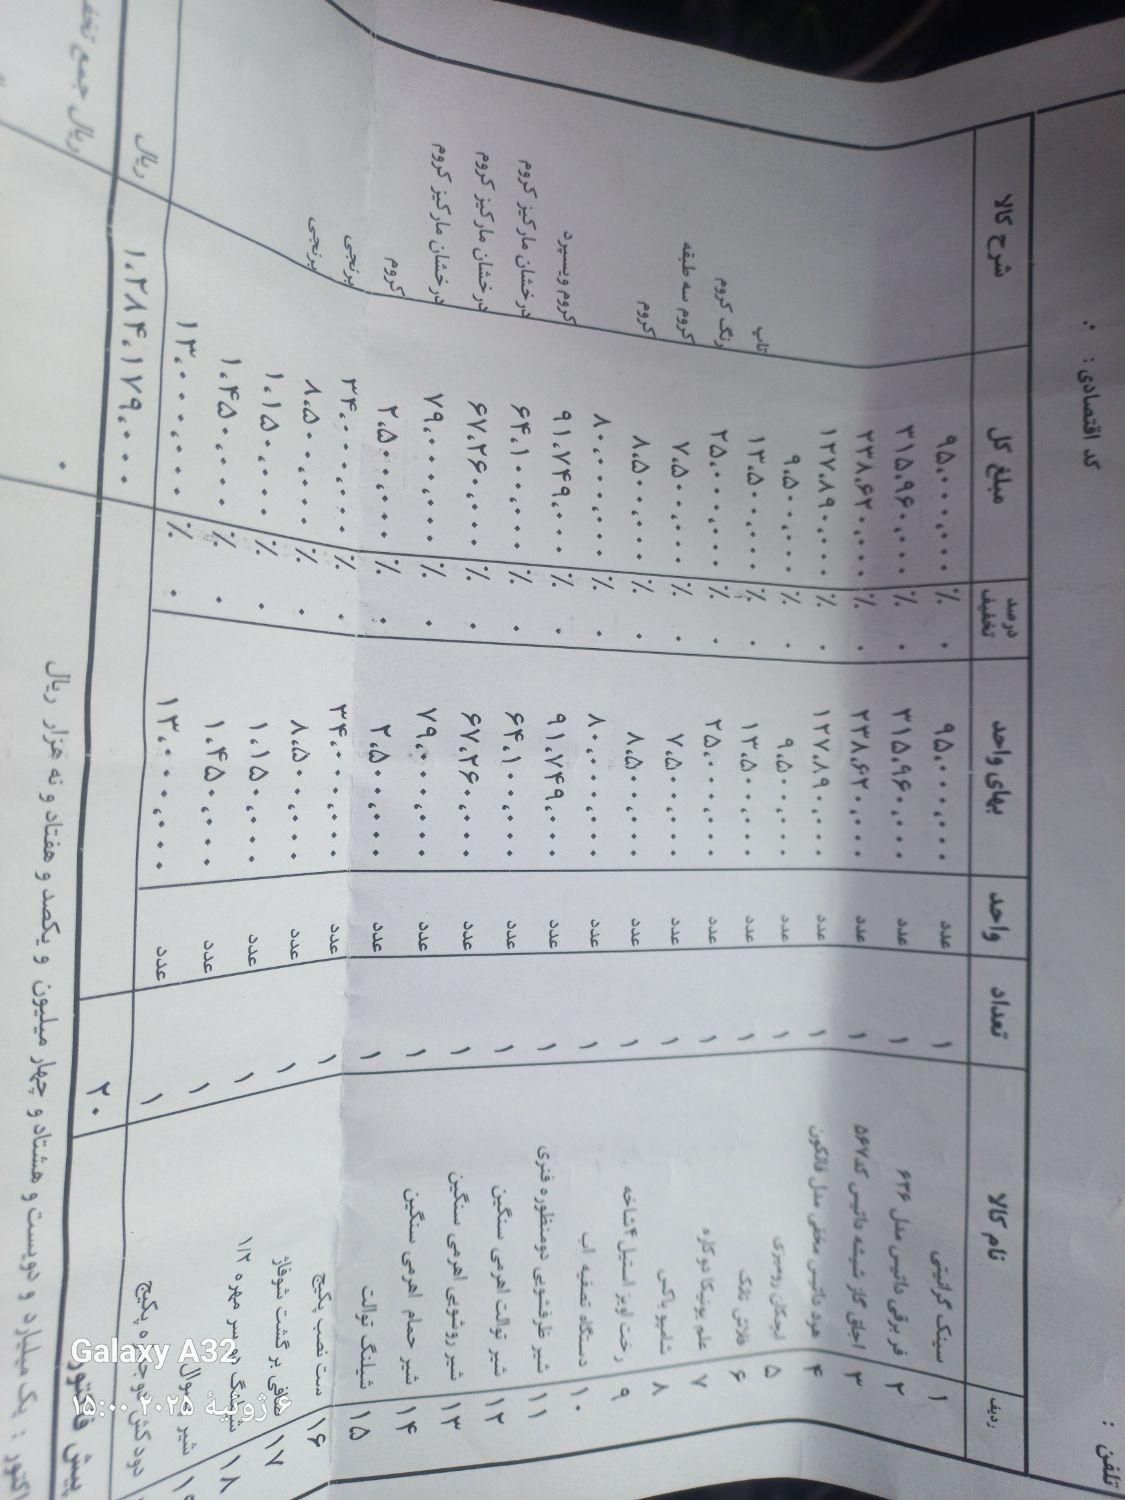 تلفن :
کد اقتصادی : ۰
ردیف نام کالا تعداد واحد بهای واحد درصد تخفیف مبلغ کل شرح کالا
۱ سینک گرانیتی ۱ عدد ۹۵،۰۰۰،۰۰۰ ۰ % ۹۵،۰۰۰،۰۰۰
۲ فر برقی داتیس مدل ۶۳۶ ۱ عدد ۳۱۵،۹۶۰،۰۰۰ ۰ % ۳۱۵،۹۶۰،۰۰۰
۳ اجاق گاز شیشه داتیس کد۵۶۷ ۱ عدد ۲۳۸،۶۲۰،۰۰۰ ۰ % ۲۳۸،۶۲۰،۰۰۰
۴ هود داتیس مخفی مدل فالکون ۱ عدد ۱۲۷،۸۹۰،۰۰۰ ۰ % ۱۲۷،۸۹۰،۰۰۰
۵ رومیزی ۱ عدد ۹،۵۰۰،۰۰۰ ۰ % ۹،۵۰۰،۰۰۰
۶ فلاش تانک ۱ عدد ۱۳،۵۰۰،۰۰۰ ۰ % ۱۳،۵۰۰،۰۰۰ تاپ
۷ علم یونیکا دوکاره ۱ عدد ۲۵،۰۰۰،۰۰۰ ۰ % ۲۵،۰۰۰،۰۰۰ رنگ کروم
۸ شامپو باکس ۱ عدد ۷،۵۰۰،۰۰۰ ۰ % ۷،۵۰۰،۰۰۰ کروم سه طبقه
۹ رخت اویز استیل ۴شاخه ۱ عدد ۸،۵۰۰،۰۰۰ ۰ % ۸،۵۰۰،۰۰۰ کروم
۱۰ دستگاه تصفیه اب ۱ عدد ۸۰،۰۰۰،۰۰۰ ۰ % ۸۰،۰۰۰،۰۰۰
۱۱ شیر ظرفشویی دومنظوره فنری ۱ عدد ۹۱،۷۴۹،۰۰۰ ۰ % ۹۱،۷۴۹،۰۰۰ کروم ویسپرد
۱۲ شیر توالت اهرمی سنگین ۱ عدد ۶۴،۱۰۰،۰۰۰ ۰ % ۶۴،۱۰۰،۰۰۰ درخشان مارکیز کروم
۱۳ شیر روشویی اهرمی سنگین ۱ عدد ۶۷،۲۶۰،۰۰۰ ۰ % ۶۷،۲۶۰،۰۰۰ درخشان مارکیز کروم
۱۴ شیر حمام اهرمی سنگین ۱ عدد ۷۹،۰۰۰،۰۰۰ ۰ % ۷۹،۰۰۰،۰۰۰ درخشان مارکیز کروم
۱۵ شیلنگ توالت ۱ عدد ۲،۵۰۰،۰۰۰ ۰ % ۲،۵۰۰،۰۰۰ کروم
۱۶ ست نصب پکیج ۱ عدد ۳۴،۰۰۰،۰۰۰ ۰ % ۳۴،۰۰۰،۰۰۰ برنجی
۱۷ صافی برگشت شوفاژ ۱ عدد ۸،۵۰۰،۰۰۰ ۰ % ۸،۵۰۰،۰۰۰ برنجی
۱۸ شیلنگ دو سر مهره ۱/۲ ۱ عدد ۱،۱۵۰،۰۰۰ ۰ % ۱،۱۵۰،۰۰۰
شیر ۱ عدد ۱،۴۵۰،۰۰۰ ۰ % ۱،۴۵۰،۰۰۰
دودکش دوجداره پکیج ۱ عدد ۱۳،۰۰۰،۰۰۰ ۰ % ۱۳،۰۰۰،۰۰۰
پیش فاکتور ۲۰ ۱،۲۸۴،۱۷۹،۰۰۰ ریال
اکتور : یک میلیارد و دویست و هشتاد و چهار میلیون و یکصد و هفتاد و نه هزار ریال ۰ ریال جمع تخف
Galaxy A32
۶ ژوئیهٔ ۲۰۲۵ ۱۵:۰۰